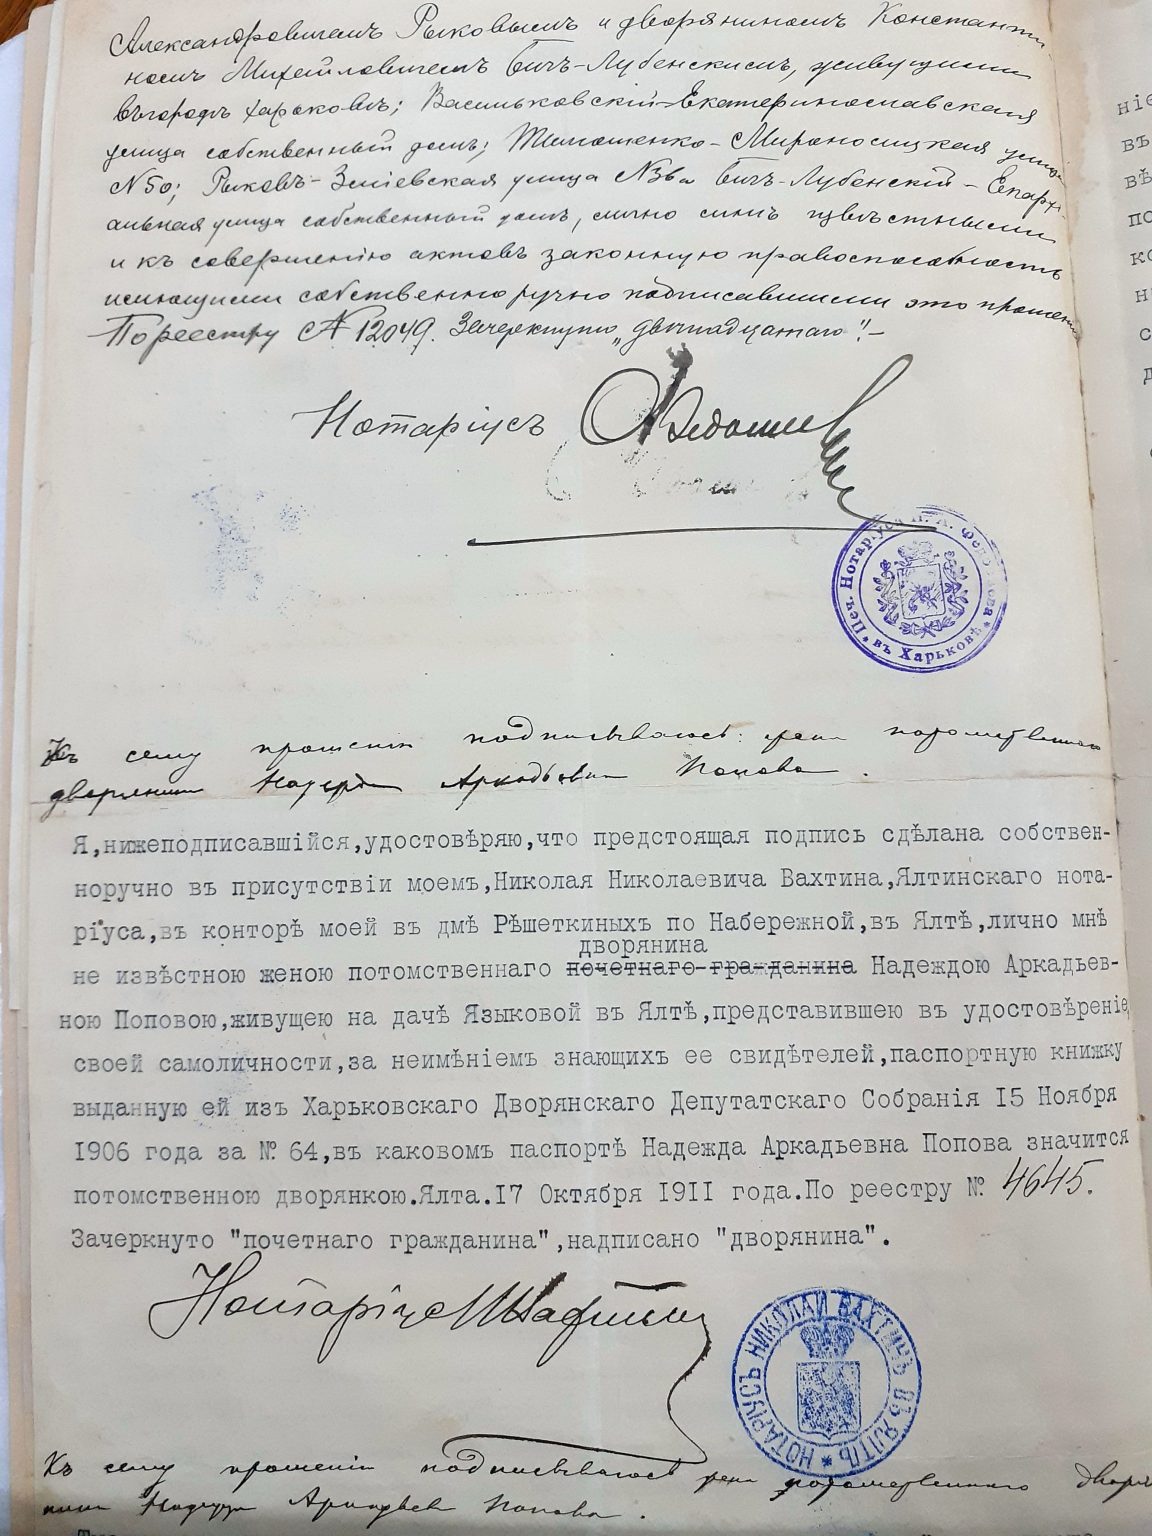 Александровичемъ Рыковымъ и дворяниномъ Константи-
номъ Михайловичемъ Бичъ-Лубенскимъ, живущими
въ городѣ Харьковѣ; Васильковскій-Екатеринославская
улица собственный домъ; Тимошенко-Мироносицкая улица
№ 50; Рыковъ-Зміевская улица № 36а Бичъ-Лубенскій-Епархі-
альная улица собственный домъ, лично мнѣ извѣстными
и къ совершенію актовъ законную правоспособность
имѣющими собственноручно подписавшими это прошеніе
По реестру № 12049. Зачеркнуто „двѣнадцатаго".-
Нотаріусъ
Печ. Нотаріуса въ Харьковѣ
Къ сему прошенію подписываюсь: жена потомственнаго
дворянина Надежда Аркадьевна Попова.
Я,нижеподписавшійся,удостовѣряю,что предстоящая подпись сдѣлана собствен-
норучно въ присутствіи моемъ,Николая Николаевича Вахтина,Ялтинскаго нота-
ріуса,въ конторѣ моей въ дмѣ Рѣшеткиныхъ по Набережной,въ Ялтѣ,лично мнѣ
дворянина
не извѣстною женою потомственнаго почетнаго гражданина Надеждою Аркадьев-
ною Поповою,живущею на дачѣ Языковой въ Ялтѣ,представившею въ удостовѣреніе
своей самоличности,за неимѣніемъ знающихъ ее свидѣтелей,паспортную книжку
выданную ей изъ Харьковскаго Дворянскаго Депутатскаго Собранія 15 Ноября
1906 года за № 64,въ каковомъ паспортѣ Надежда Аркадьевна Попова значится
потомственною дворянкою.Ялта.17 Октября 1911 года.По реестру № 4645.
Зачеркнуто "почетнаго гражданина",надписано "дворянина".
Нотаріусъ Н Вахтинъ
НОТАРІУСЪ НИКОЛАЙ ВАХТИНЪ ВЪ ЯЛТѢ
Къ сему прошенію подписываюсь жена потомственнаго дворя-
нина Надежда Аркадьевна Попова.